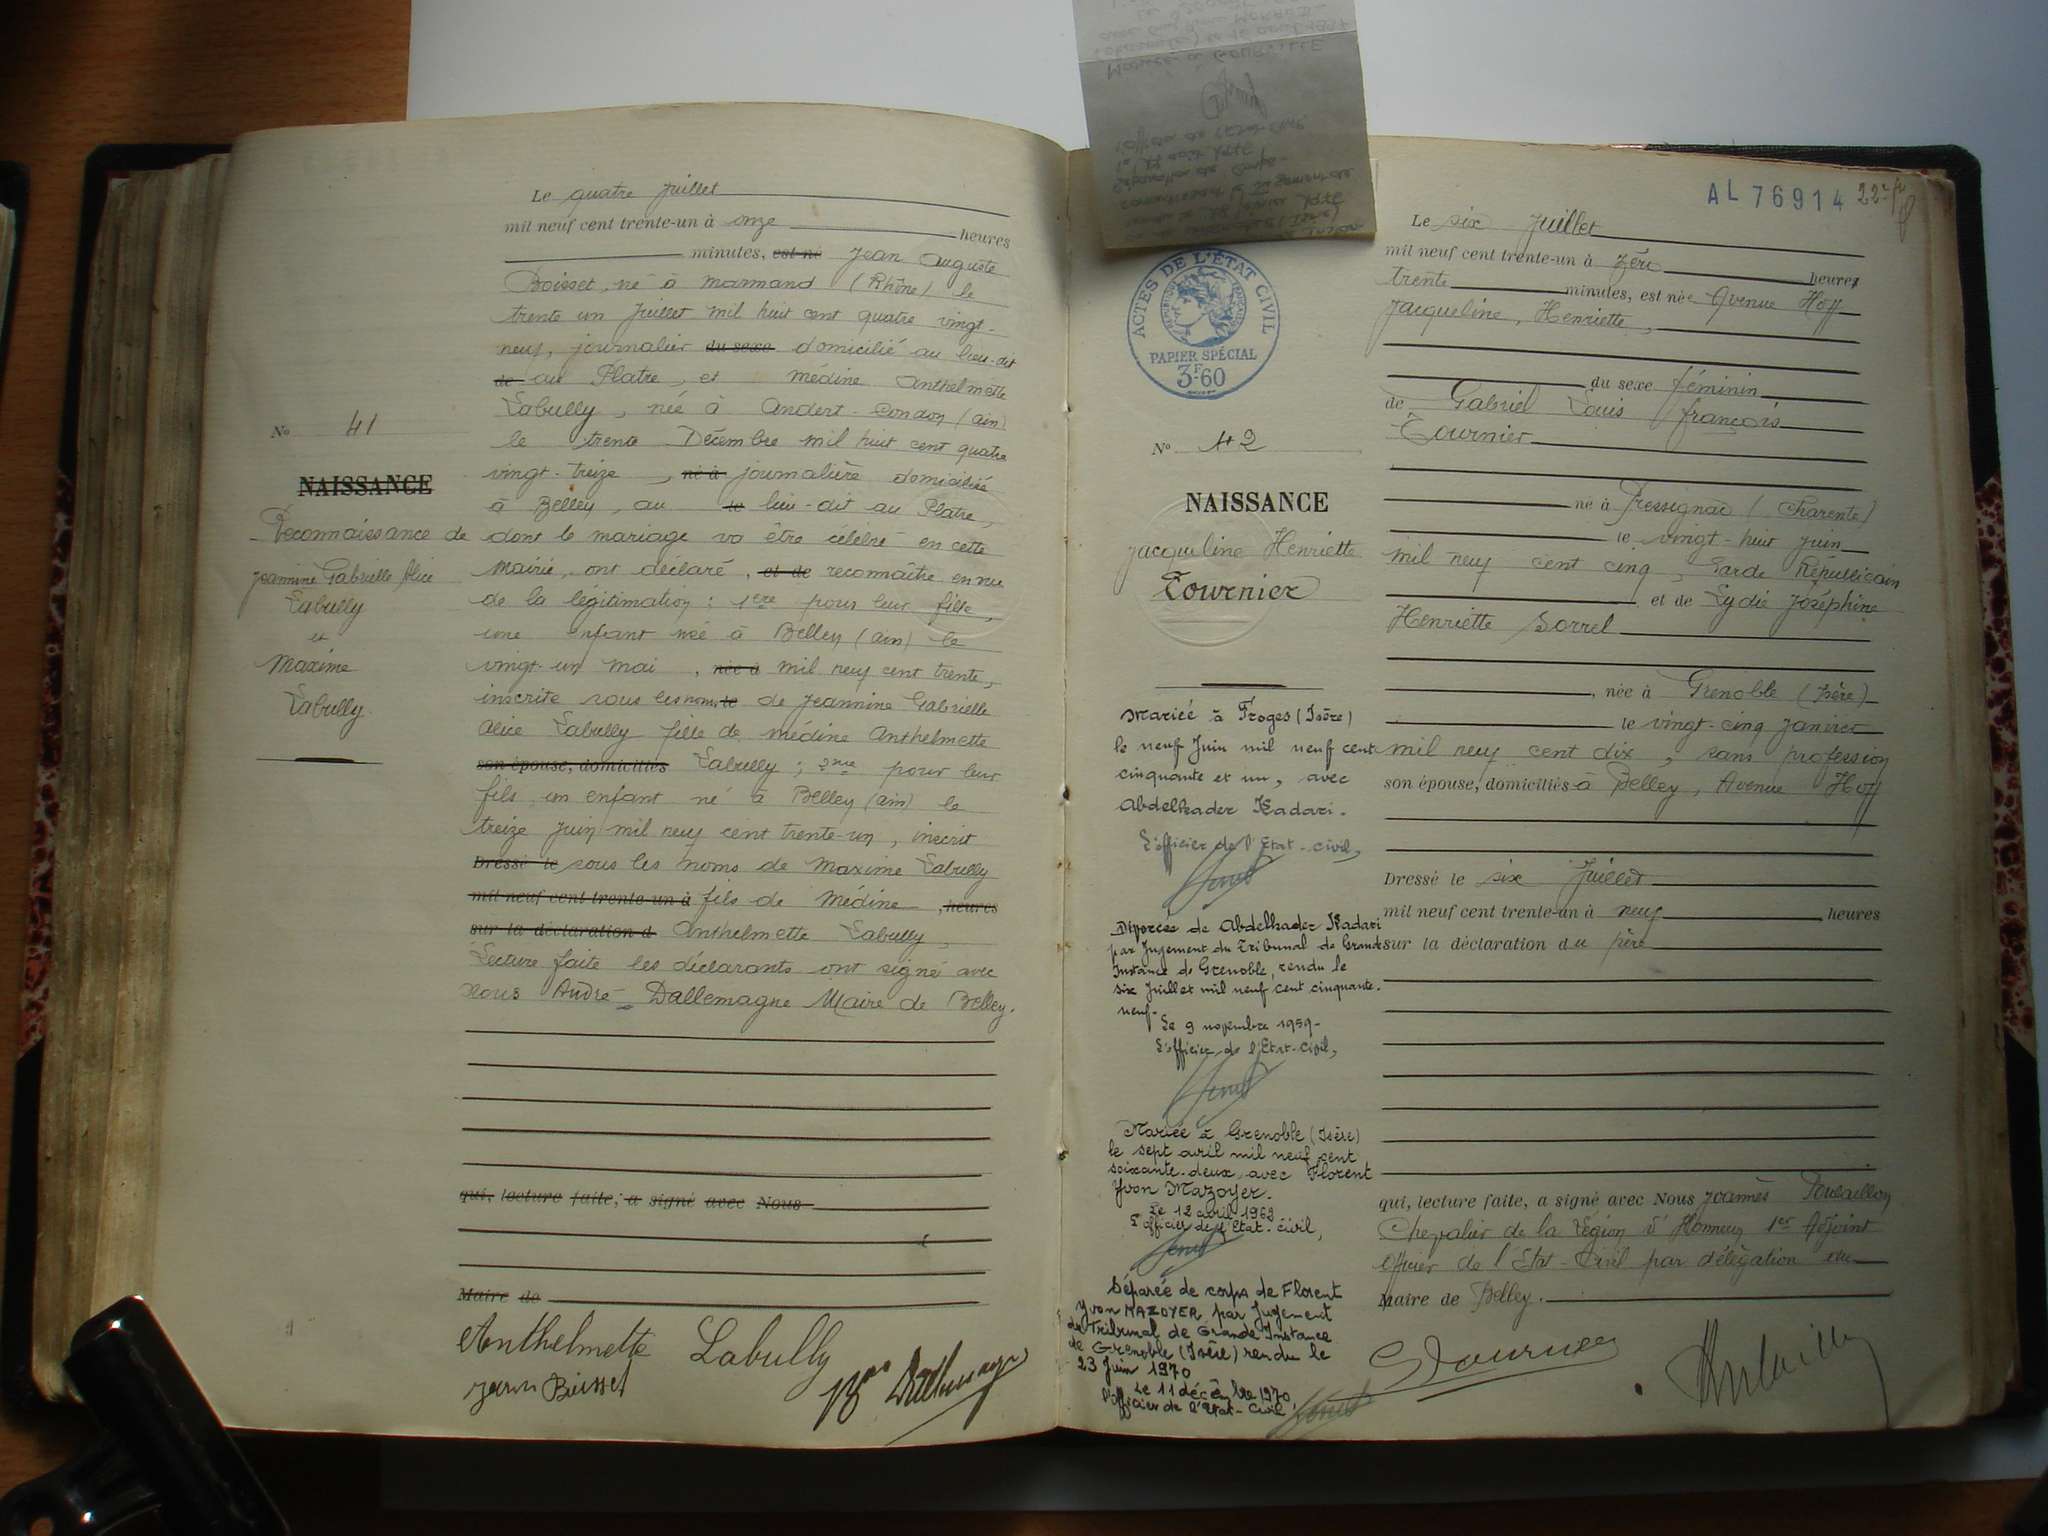 Le quatre juillet
mil neuf cent trente-un à onze heures
minutes, est né Jean Auguste
Boisset, né à Marmand (Rhône) le
trente un juillet mil huit cent quatre vingt-
neuf, journalier du sexe domicilié au lieu-dit
de au Plâtre, et Médine Anthelmette
Labully, née à Andert-Condon (ain)
le trente Décembre mil huit cent quatre
vingt-treize, né à journalière domiciliée
à Belley, au le lieu-dit au Platre,
dont le mariage va être célébré en cette
Mairie, ont déclaré, et de reconnaître en vue
de la légitimation : 1ère pour leur fille,
une enfant née à Belley (ain) le
vingt-un mai, née à mil neuf cent trente,
inscrite sous les noms le de Jeannine Gabrielle
Alice Labully fille de Médine Anthelmette
son épouse, domiciliés Labully ; 2me pour leur
fils, un enfant né à Belley (ain) le
treize juin mil neuf cent trente-un, inscrit
Dressé le sous les noms de Maxime Labully
mil neuf cent trente-un à fils de Médine, heures
sur la déclaration d Anthelmette Labully,
Lecture faite les déclarants ont signé avec
Nous André Dallemagne Maire de Belley.
qui, lecture faite, a signé avec Nous
Maire de
Anthelmette Labully
Jean Boisset
No 41
NAISSANCE
Reconnaissance de
Jeannine Gabrielle Alice
Labully
et
Maxime
Labully
AL 76914
22
ACTES DE L'ÉTAT CIVIL
RÉPUBLIQUE FRANÇAISE
PAPIER SPÉCIAL
3F.60
No 42
NAISSANCE
Jacqueline Henriette
Tournier
Mariée à Froges (Isère)
le neuf Juin mil neuf cent
cinquante et un, avec
Abdelkader Kadari.
L'officier de l'Etat-civil,
Divorcée de Abdelkader Kadari
par Jugement du Tribunal de Grande
Instance de Grenoble, rendu le
six Juillet mil neuf cent cinquante-
neuf-
Le 9 novembre 1959-
L'officier de l'Etat-civil,
Mariée à Grenoble (Isère)
le sept avril mil neuf cent
soixante-deux, avec Florent
Yvon Mazoyer.
Le 12 avril 1962
L'officier de l'Etat-civil,
Séparée de corps de Florent
Yvon MAZOYER par Jugement
du Tribunal de Grande Instance
de Grenoble (Isère) rendu le
23 Juin 1970
Le 11 décembre 1970,
l'officier de l'Etat-civil,
Le six juillet
mil neuf cent trente-un à zéro heures
trente minutes, est née Avenue Hoff
Jacqueline, Henriette,
du sexe féminin
de Gabriel Louis françois
Tournier
né à Pressignac (Charente)
le vingt-huit juin
mil neuf cent cinq, Garde Républicain
et de Lydie Joséphine
Henriette Sorrel
, née à Grenoble (Isère)
le vingt-cinq janvier
mil neuf cent dix, sans profession
son épouse, domiciliés à Belley, Avenue Hoff
Dressé le six Juillet
mil neuf cent trente-un à neuf heures
sur la déclaration du père
qui, lecture faite, a signé avec Nous Joannès
Chevalier de la Légion d'Honneur 1er Adjoint
Officier de l'Etat-Civil par délégation du
Maire de Belley.
G Tournier